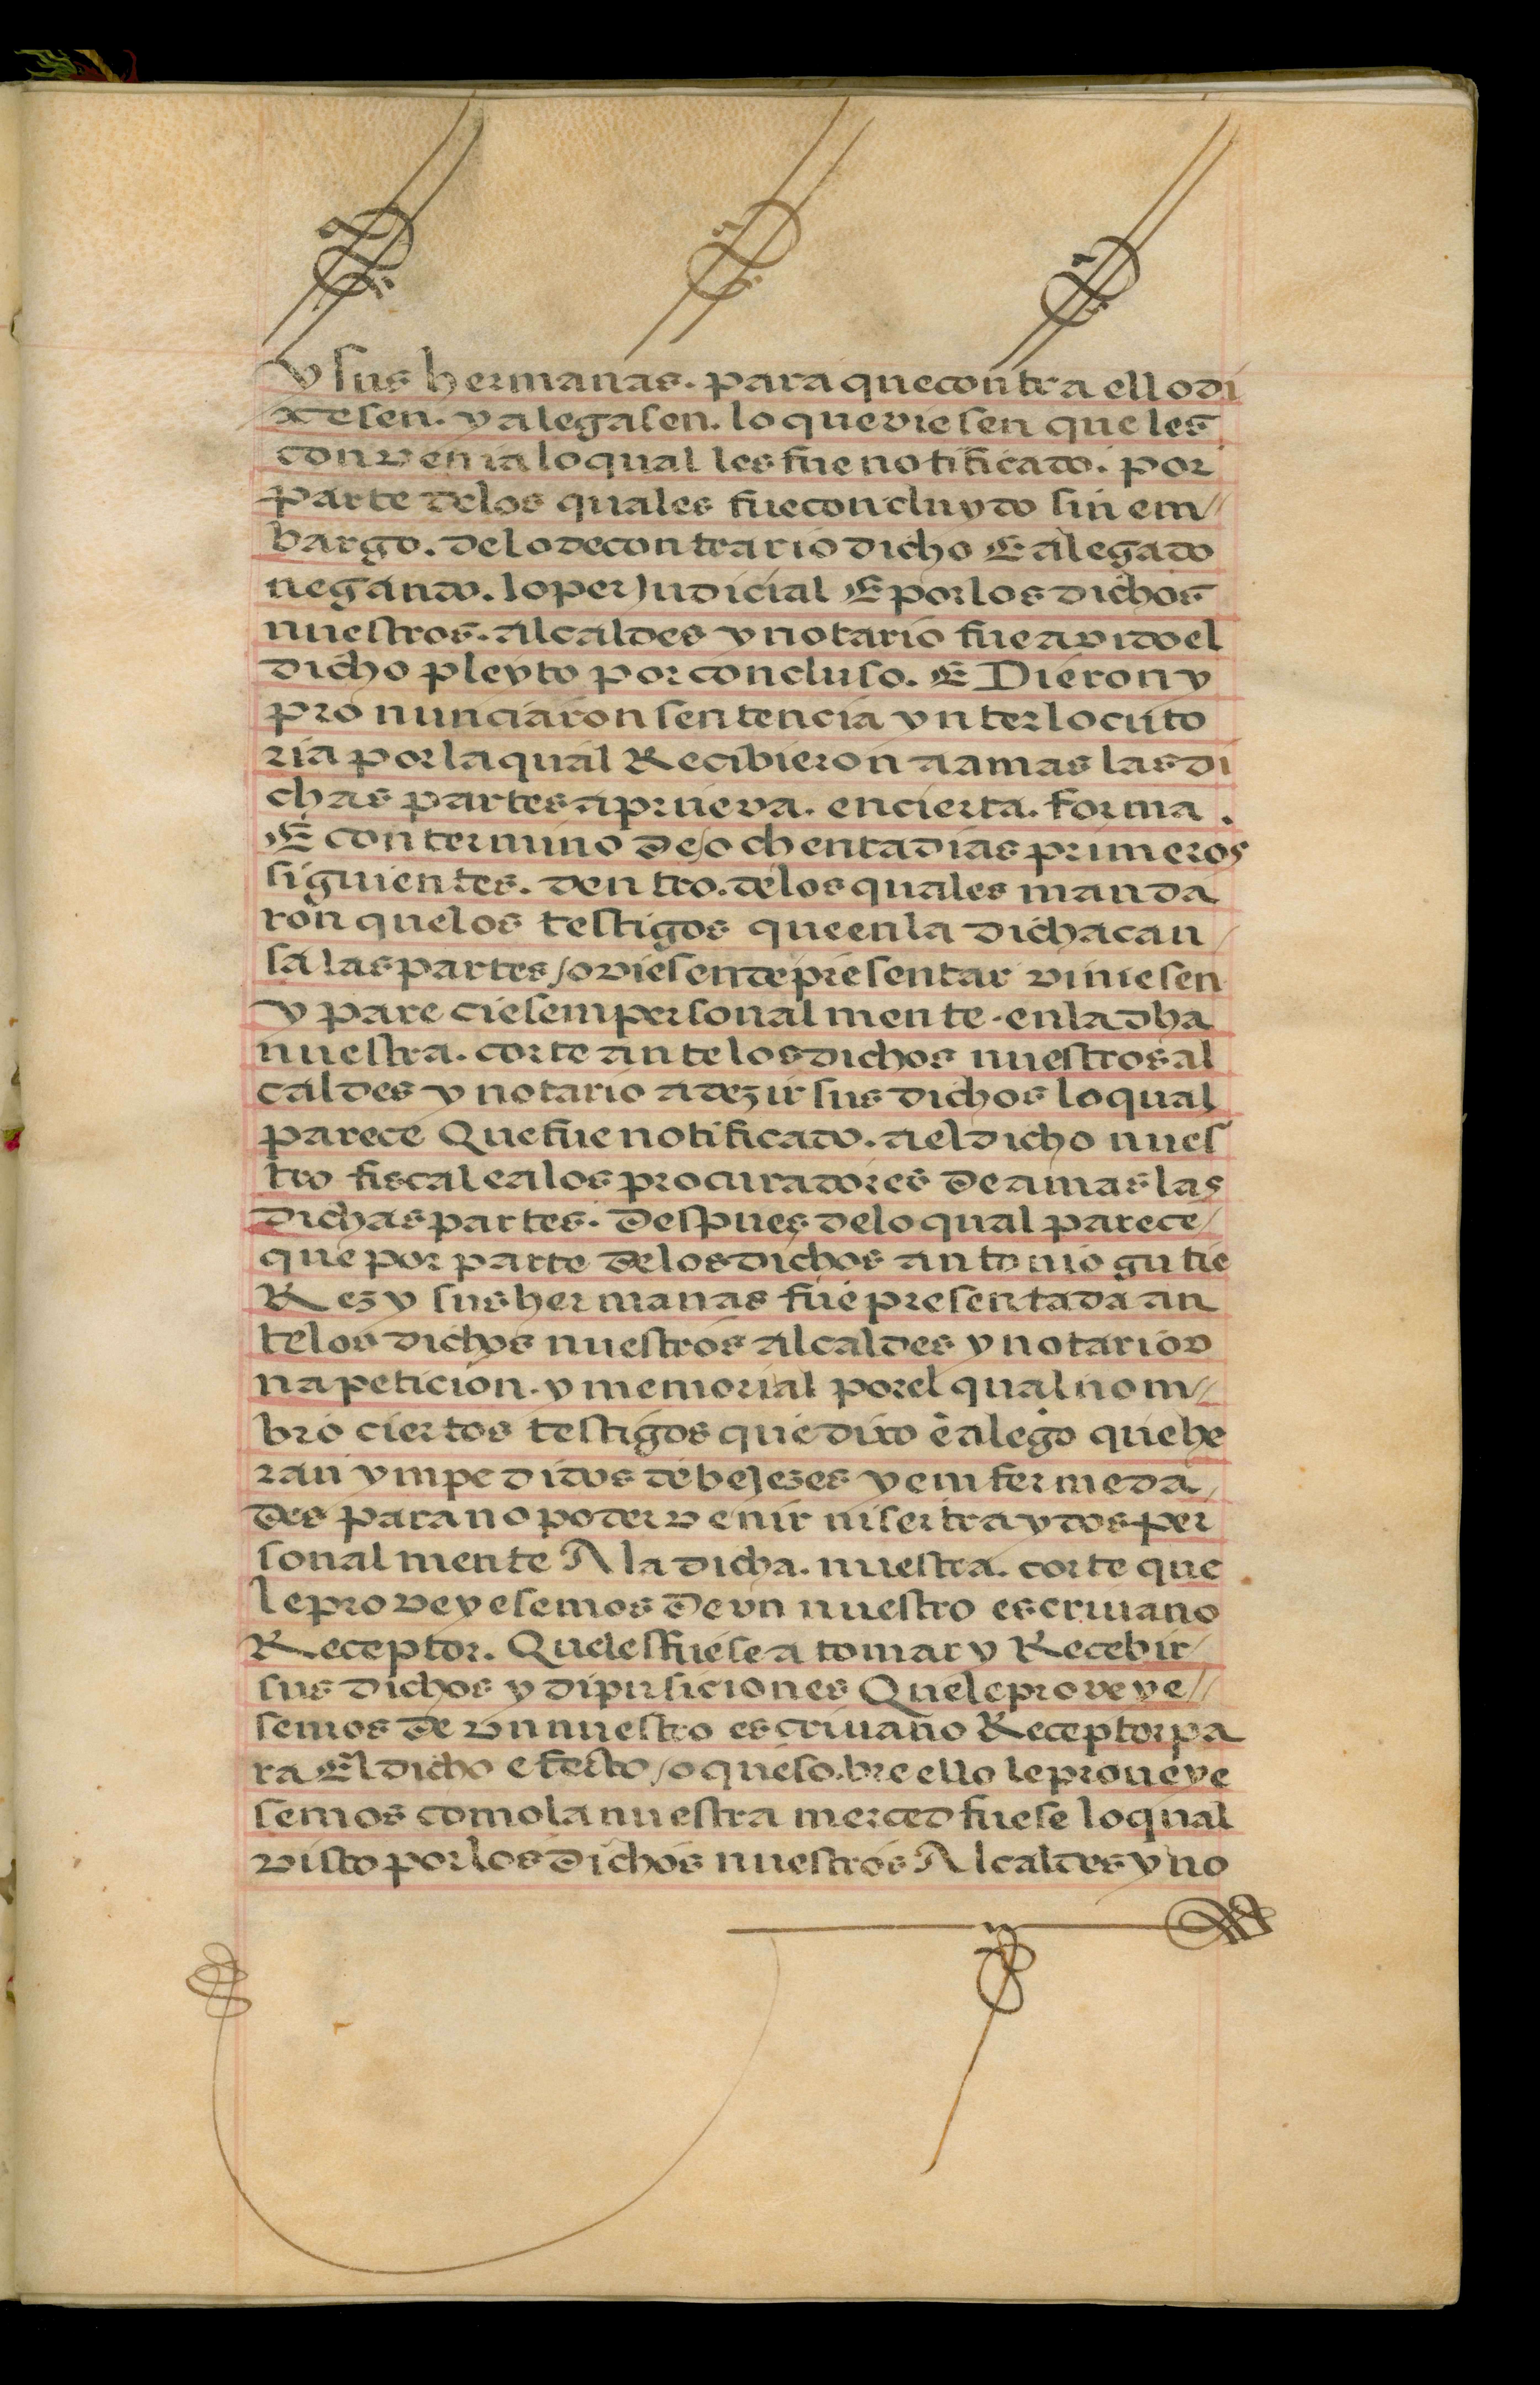 y sus hermanas. para que contra ello di
xesen. y alegasen. lo que viesen que les
convenia lo qual les fue notificado. por
parte delos quales fue concluydo sin em//
bargo. delo de contrario dicho E alegado
negando. lo perJudicial E por los dichos
nuestros. alcaldes y notario fue avido el
dicho pleyto por concluso. E Dieron y
pronunciaron sentencia ynterlocuto
ria por la qual Recibieron a amas las di
chas partes a prueva. en cierta. forma.
E con termino de/ochenta dias primeros
siguientes. dentro. delos quales manda
ron que los testigos que en la dicha cau/
sa las partes/oviesen de presentar viniesen
y pareciesem personalmente. en la dha
nuestra. corte ante los dichos nuestros al
caldes y notario a dezir sus dichos lo qual
parece Que fue notificado. a el dicho nues
tro fiscal e a los procuradores de amas las
dichas partes. Despues delo qual parece/
que por parte de los dichos antonio gutie
Rez y sus hermanas fue presentada an
te los dichos nuestros alcaldes y notario v
na peticion. y memorial por el qual nom//
bro ciertos testigos que dixo e alego que he
ran ympedidos de beJezes y emfermeda/
des para no poder venir ni ser traydos per
sonalmente A la dicha. nuestra. corte que
le proveyesemos de un nuestro escriuano
Receptor. Que les fuese a tomar y Recebir/
sus dichos y dipusiciones Que le proveye//
semos de vn nuestro escriuano Receptor pa
ra El dicho efecto/o que sobre ello le proueye
semos como la nuestra merced fuese lo qual
visto por los dichos nuestros Alcaldes y no